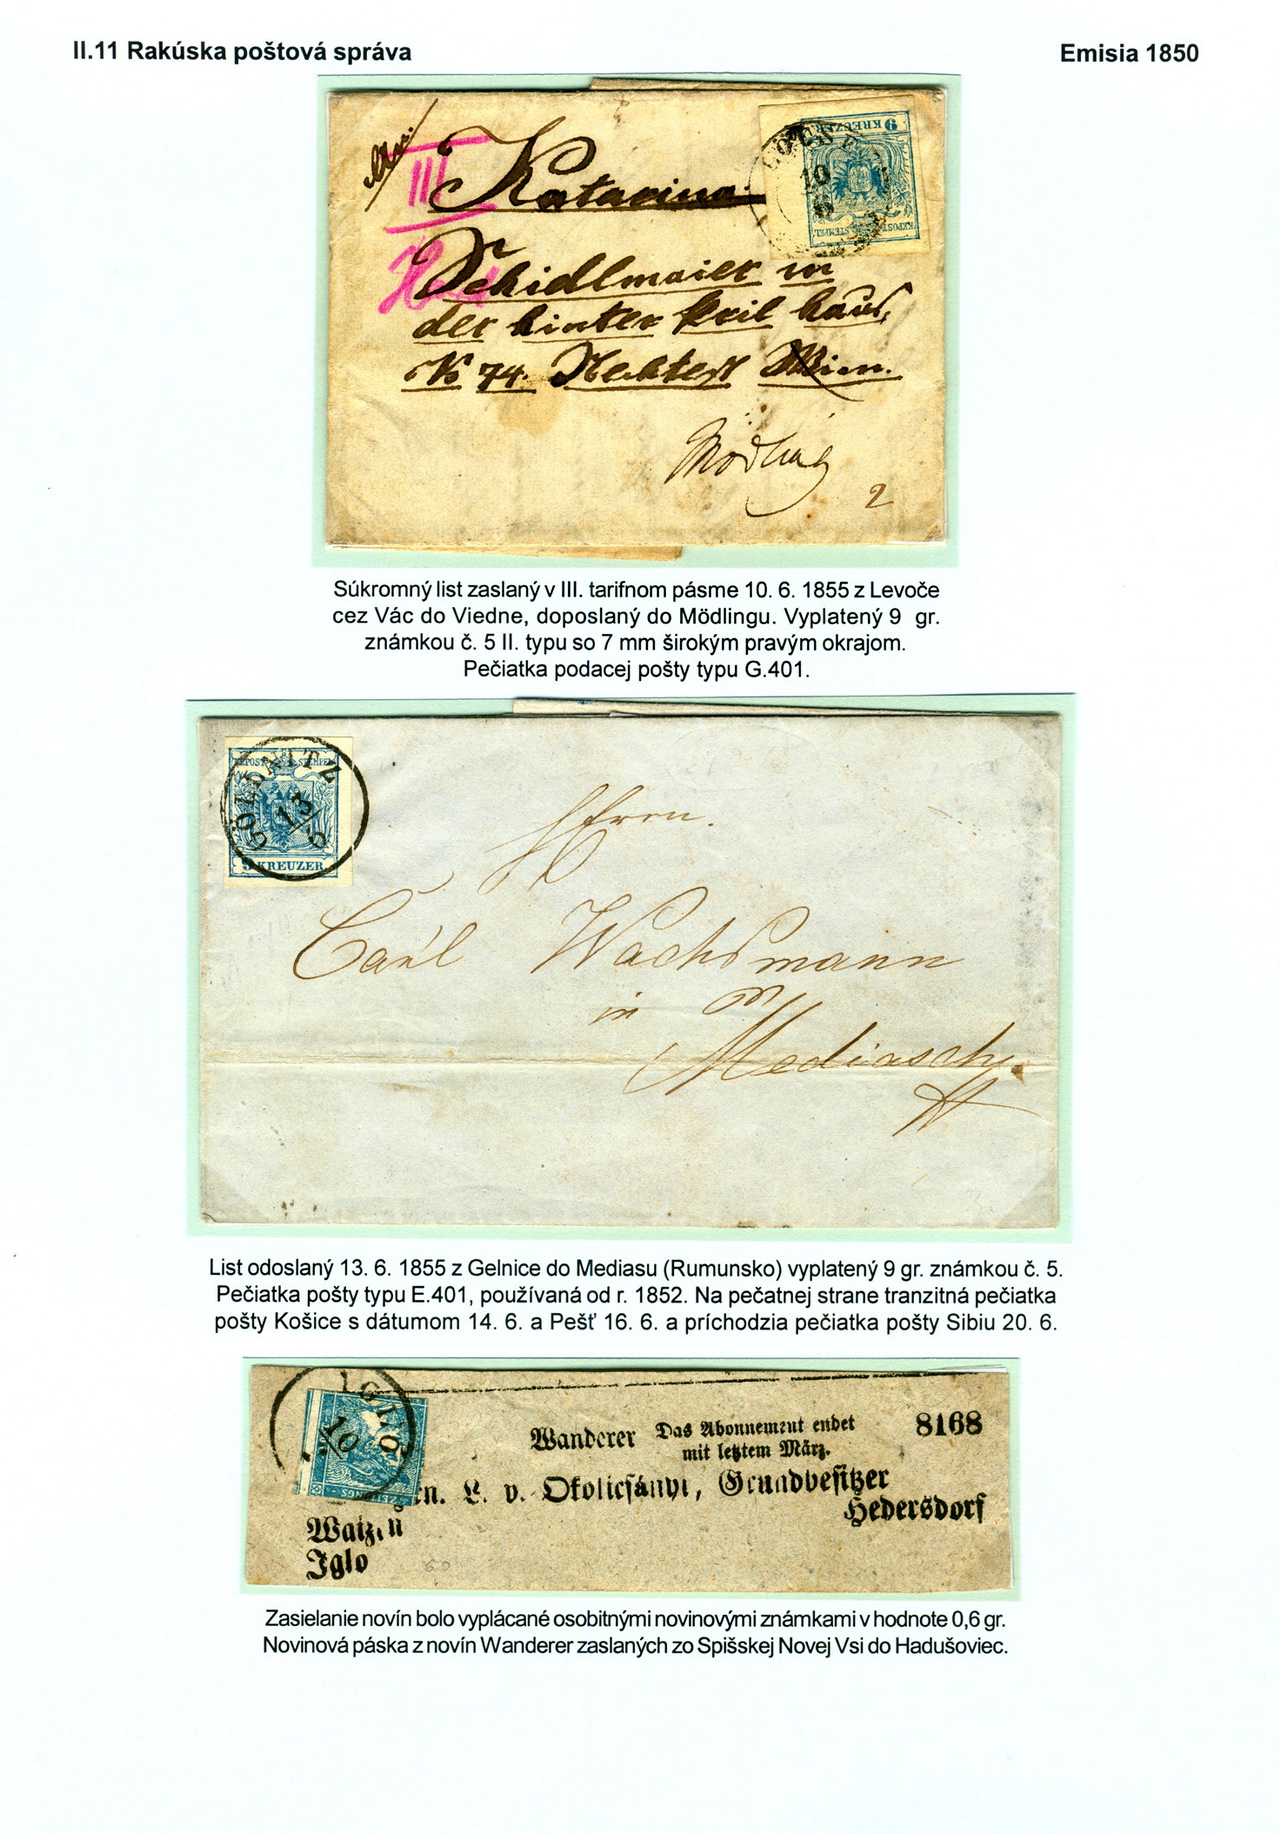 II.11 Rakúska poštová správa
Emisia 1850
III
Katarina
9 KREUZER
10
6
STEMPEL
Schidlmaier in
der hinter
K 74. Wien.
Mödling
2
Súkromný list zaslaný v III. tarifnom pásme 10. 6. 1855 z Levoče
cez Vác do Viedne, doposlaný do Mödlingu. Vyplatený 9 gr.
známkou č. 5 II. typu so 7 mm širokým pravým okrajom.
Pečiatka podacej pošty typu G.401.
KKPOST STEMPEL
GÖLLNITZ
13
6
9 KREUZER
Herrn.
Carl Wachsmann
in
Mediasch.
List odoslaný 13. 6. 1855 z Gelnice do Mediasu (Rumunsko) vyplatený 9 gr. známkou č. 5.
Pečiatka pošty typu E.401, používaná od r. 1852. Na pečatnej strane tranzitná pečiatka
pošty Košice s dátumom 14. 6. a Pešť 16. 6. a príchodzia pečiatka pošty Sibiu 20. 6.
IGLÓ
10
ZEITUNGS
Wanderer Das Abonnement endet 8168
mit letztem März.
L. v. Okolicsányi, Grundbesitzer
Hedersdorf
Waizen
Iglo
60
Zasielanie novín bolo vyplácané osobitnými novinovými známkami v hodnote 0,6 gr.
Novinová páska z novín Wanderer zaslaných zo Spišskej Novej Vsi do Hadušoviec.